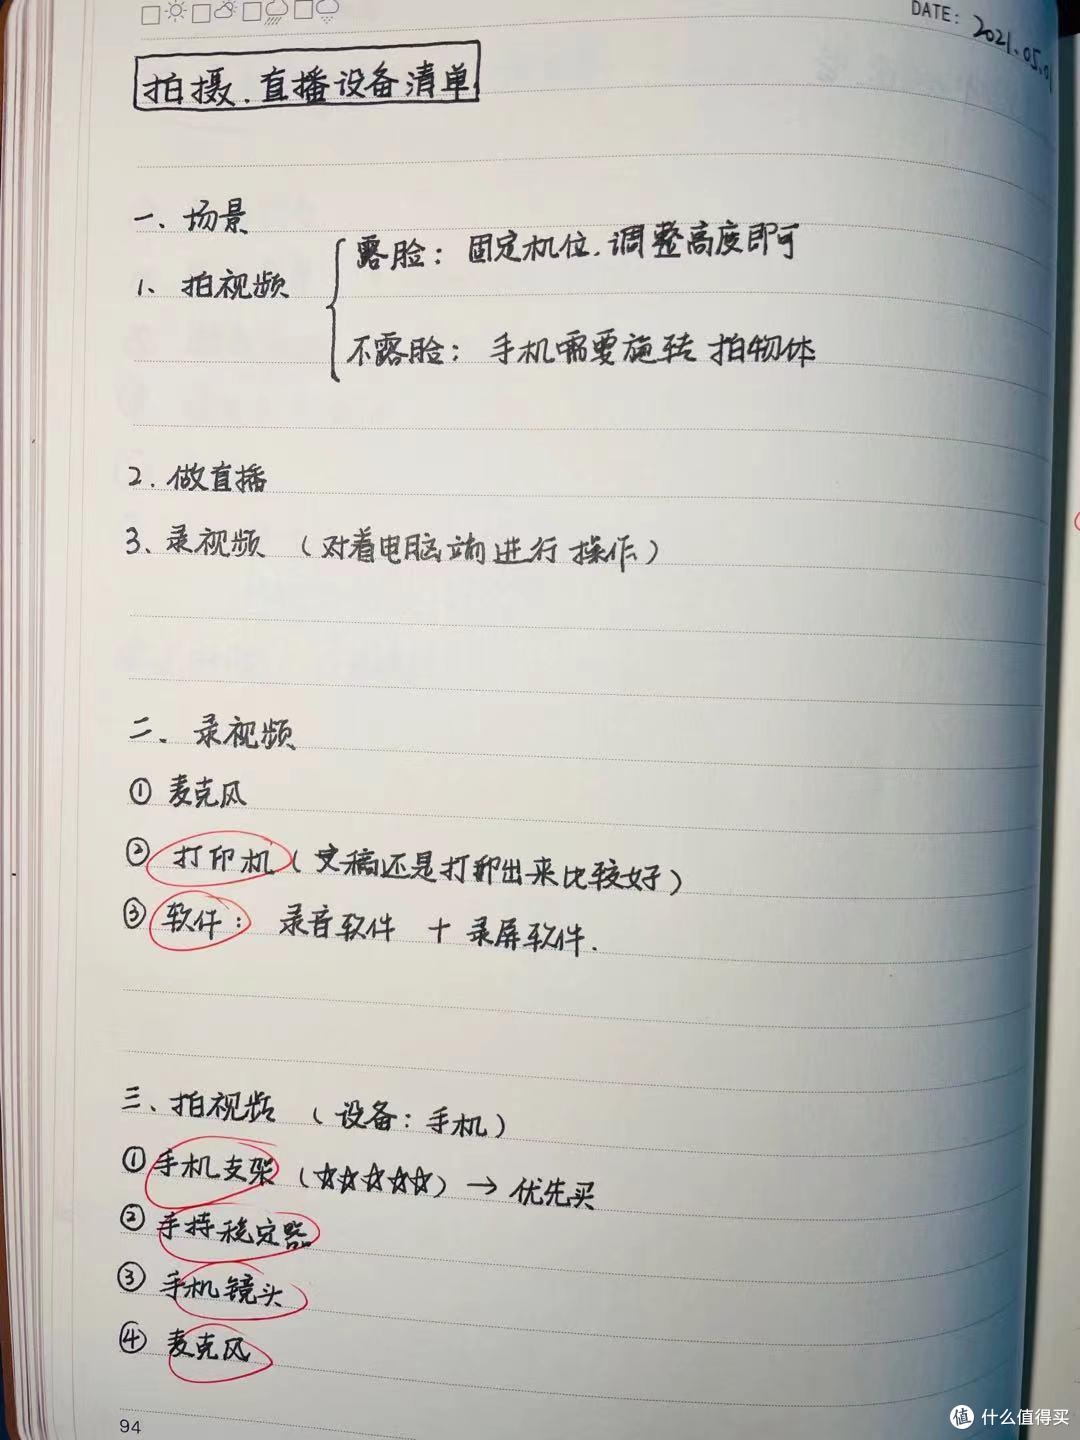 DATE: 2021.05.0
拍摄.直播设备清单
一、场景
露脸：固定机位.调整高度即可
1、拍视频
不露脸：手机需要旋转拍物体
2.做直播
3、录视频（对着电脑端进行操作）
二、录视频
①麦克风
②打印机（文稿还是打印出来比较好）
③软件：录音软件+录屏软件.
三、拍视频（设备：手机）
①手机支架（☆☆☆☆☆）→优先买
②手持稳定器
③手机镜头
④麦克风
94
值 什么值得买